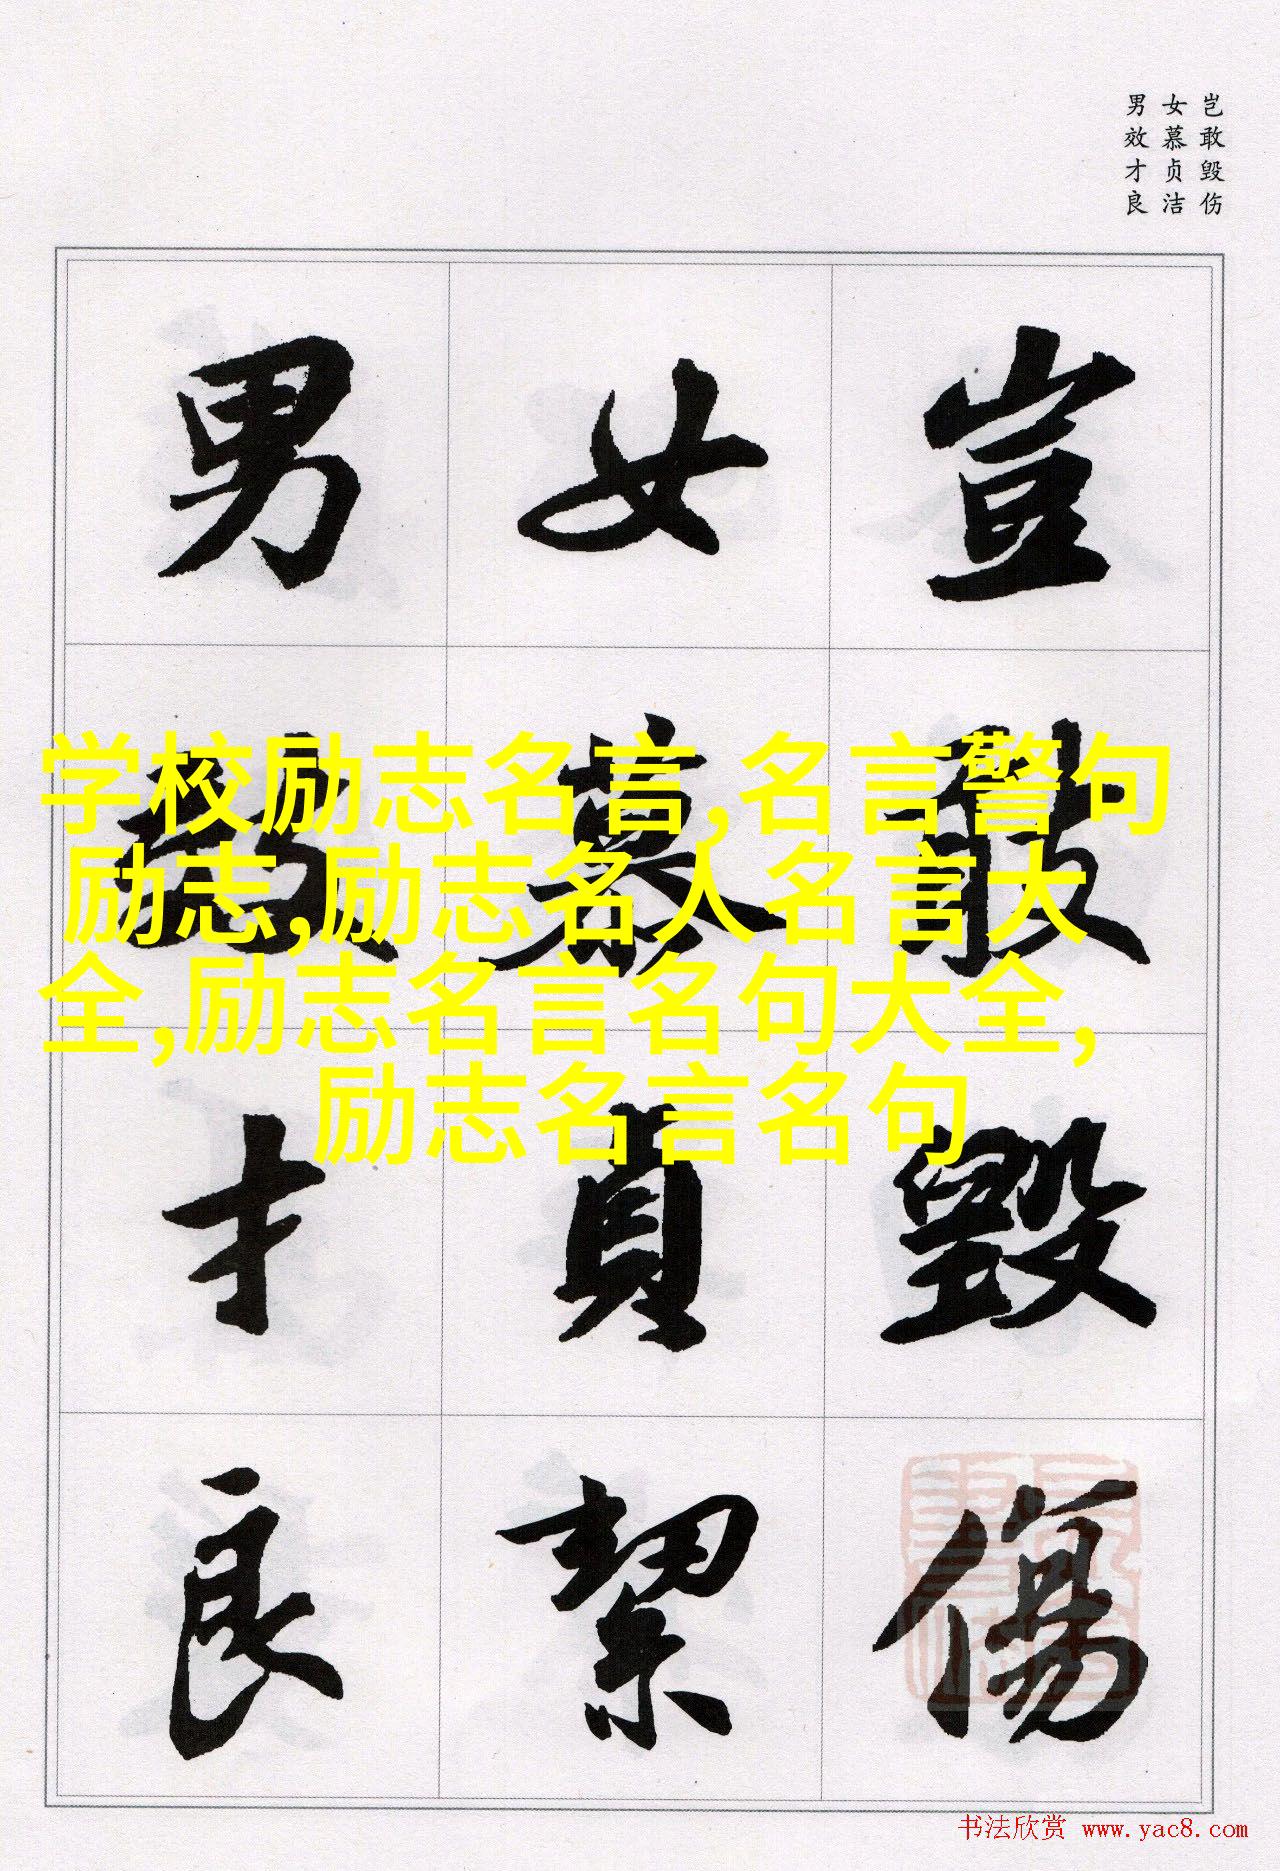 岂敢毁伤
女慕贞洁
男效才良
豈敢毀傷
女慕貞絜
男效才良
学校励志名言,名言警句
励志,励志名人名言大
全,励志名言名句大全,
励志名言名句
书法欣赏 www.yac8.com